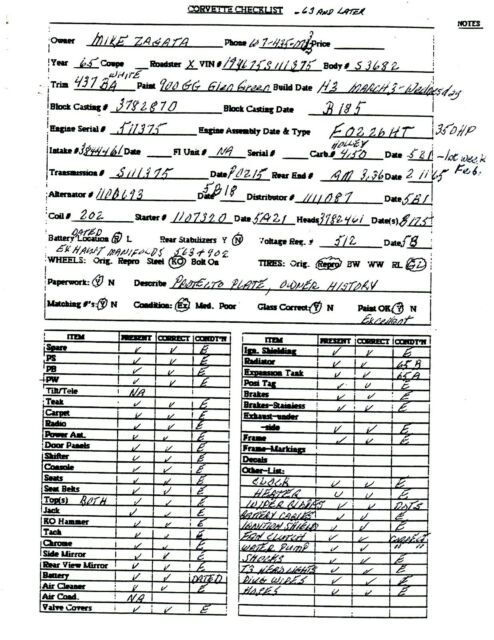 CORVETTE CHECKLIST - 63 AND LATER
NOTES
Owner MIKE ZAGATA Phone Price
Year 65 Coupe Roadster X VIN # 194675S111375 Body # S3682
WHITE
Trim 437 BA Paint 900 GG Glen Green Build Date H3 MARCH 3-Wednesday
Block Casting # 3782870 Block Casting Date B185
Engine Serial # 5111375 Engine Assembly Date & Type F0226HT 350HP
HOLLEY
Intake # 3844461 Date FI Unit # NA Serial # Carb. Date 521 -1st week Feb.
Transmission # S111375 Date P0215 Rear End # AM 3.36 Date 2 11 65
Alternator # 1100693 Date 5B18 Distributor # 1111087 Date 5B1
Coil # 202 Starter # 1107320 Date 5A21 Heads 3782461 Date(s) B175
DATED
Battery Location R L Rear Stabilizers Y N Voltage Reg. # 512 Date 5B
EXHAUST MANIFOLDS 563 + 902
WHEELS: Orig. Repro Steel KO Bolt On TIRES: Orig. Repro BW WW RL GL
Paperwork: Y N Describe PROTECTO PLATE, OWNER HISTORY
Matching #'s: Y N Condition: Ex Med. Poor Glass Correct: Y N Paint OK: Y N
Excellent
ITEM PRESENT CORRECT CONDT'N
Spare ✓ ✓ E
PS ✓ ✓ E
PB ✓ ✓ E
PW ✓ ✓ E
Tilt/Tele NA
Teak ✓ ✓ E
Carpet ✓ ✓ E
Radio ✓ ✓ E
Power Ant. ✓ ✓ E
Door Panels ✓ ✓ E
Shifter ✓ ✓ E
Console ✓ ✓ E
Seats ✓ ✓ E
Seat Belts ✓ ✓ E
Top(s) BOTH ✓ ✓ E
Jack ✓ ✓ E
KO Hammer ✓ ✓ E
Tach ✓ ✓ E
Chrome ✓ ✓ E
Side Mirror ✓ ✓ E
Rear View Mirror ✓ ✓ E
Battery ✓ ✓ DATED
Air Cleaner ✓ ✓ E
Air Cond. NA
Valve Covers ✓ ✓ E
ITEM PRESENT CORRECT CONDT'N
Ign. Shielding ✓ ✓ E
Radiator ✓ ✓ 65 A
Expansion Tank ✓ ✓ 65A
Posi Tag ✓ ✓ E
Brakes ✓ ✓ E
Brakes-Stainless ✓ ✓ E
Exhaust-under
-side ✓ ✓ E
Frame ✓ ✓ E
Frame-Markings
Decals
Other-List:
CLOCK ✓ ✓ E
HEATER ✓ ✓ E
WIPER BLADES ✓ ✓
BATTERY CABLES ✓ ✓ E
IGNITION SHIELD ✓ ✓ E
FAN CLUTCH ✓ ✓ CORRECT
WATER PUMP ✓ ✓ " "
SHOCKS ✓ ✓ E
T3 HEADLIGHTS ✓ ✓ E
✓ ✓ E
HOSES ✓ ✓ E